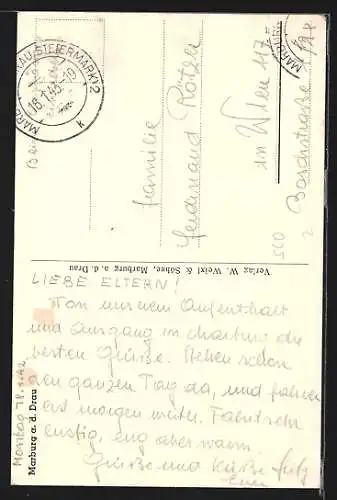 LIEBE ELTERN!
Von unserem Aufenthalt
und Ausgang in Marburg die
besten Grüße. Stehen schon
den ganzen Tag da, und fahren
erst morgen weiter. Fahrt sehr
lustig, eng aber warm.
Grüße und Küsse
Euer
Montag 18.1.42
Marburg a. d. Drau
Verlag W. Weixl & Söhne, Marburg a. d. Drau
Familie
Ferdinand
in Wien 117
Boschstraße
MARBURG
(STEIERMARK) 2
18.1.43-19
k